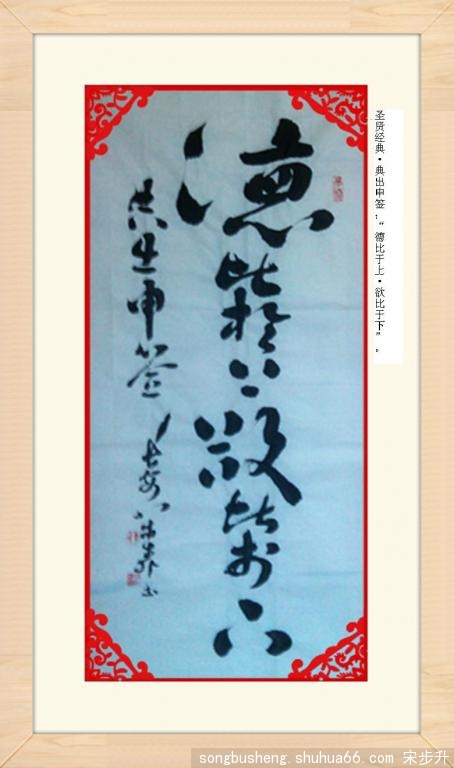 圣贤经典·典出申签:“德比于上·欲比于下”。
德比於上欲比於下
典出申签
songbusheng.shuhua66.com 宋步升